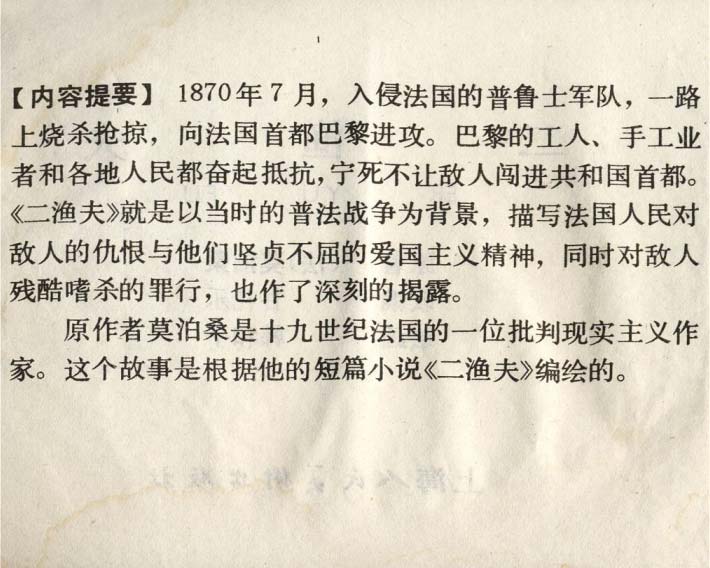 【内容提要】 1870年7月，入侵法国的普鲁士军队，一路
上烧杀抢掠，向法国首都巴黎进攻。巴黎的工人、手工业
者和各地人民都奋起抵抗，宁死不让敌人闯进共和国首都。
《二渔夫》就是以当时的普法战争为背景，描写法国人民对
敌人的仇恨与他们坚贞不屈的爱国主义精神，同时对敌人
残酷嗜杀的罪行，也作了深刻的揭露。
原作者莫泊桑是十九世纪法国的一位批判现实主义作
家。这个故事是根据他的短篇小说《二渔夫》编绘的。